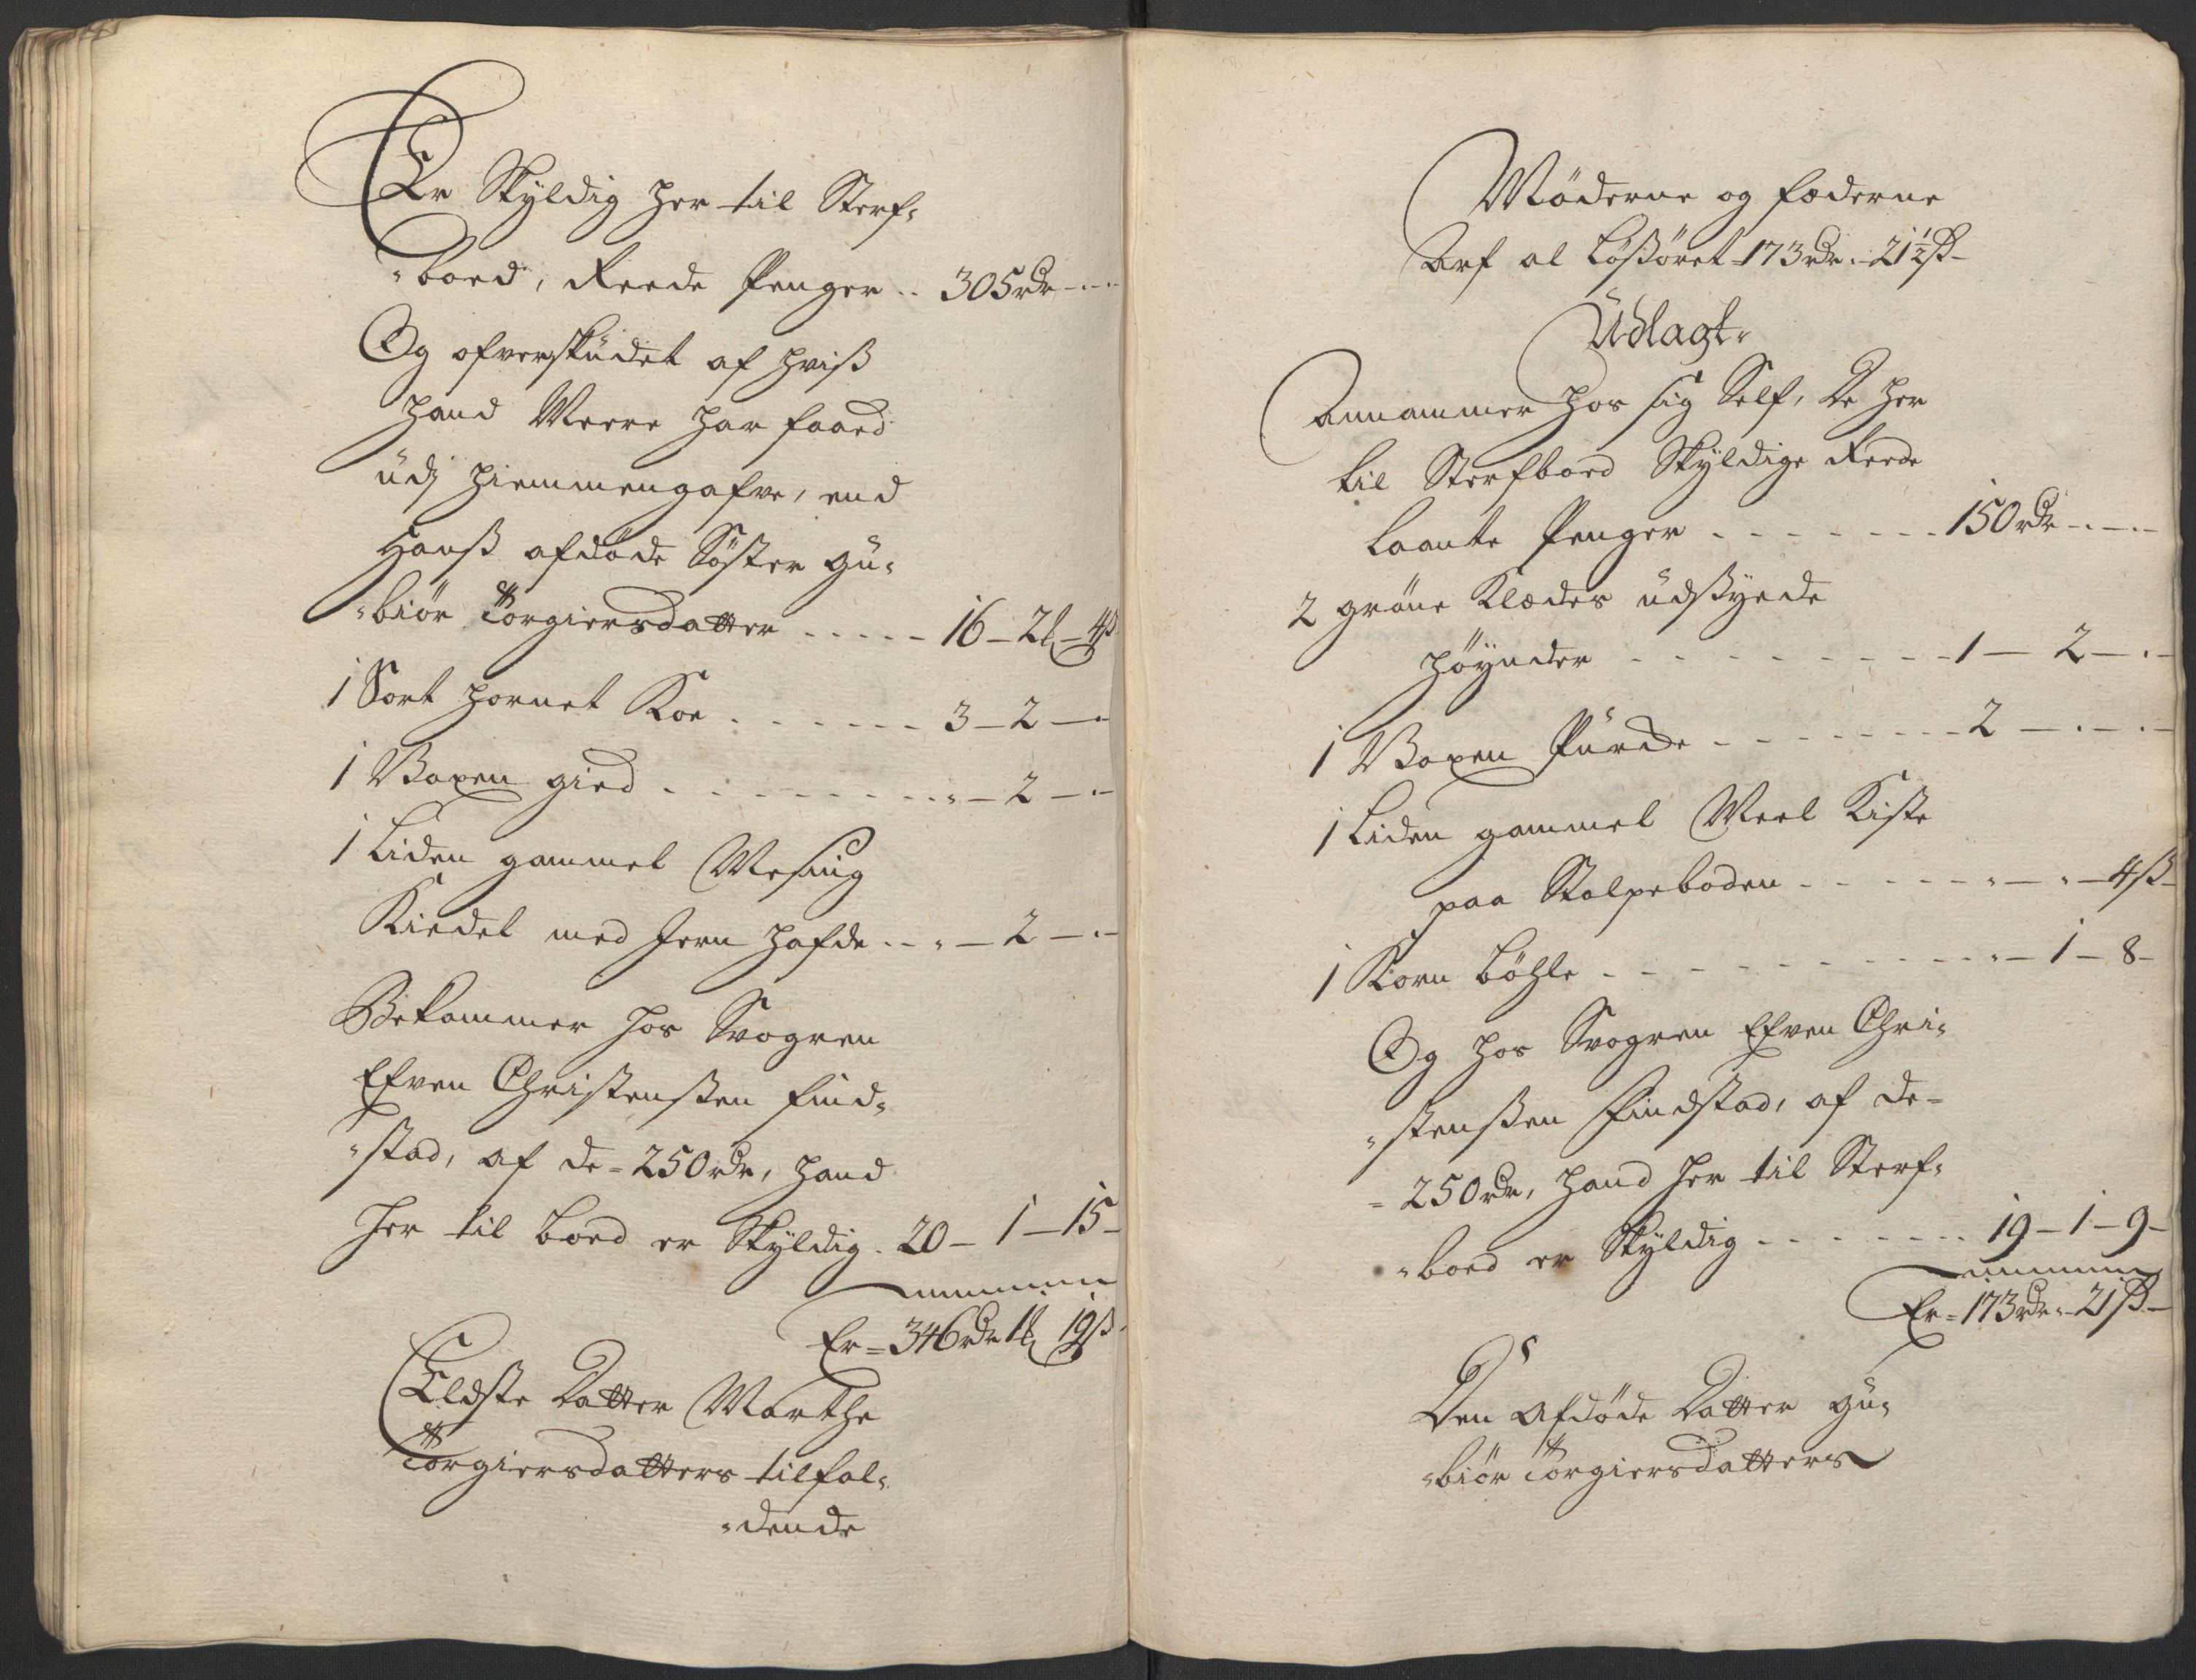 Er Skyldig her til Sterf-
-boed, Reede Penger .. 305 rdr - . -
Og ofverskudet af hviß
hand Meere har faaed
udj hiemmengafve, end
Hanß afdöde Söster Gu-
-biör Törgiersdatter - - - - - 16 - 2 ₰ - 4 ß
1 Sort hornet Koe - - - - - - 3 - 2 - . -
1 Voxen gied - - - - - - - " - 2 - . -
1 Liden gammel Mesing
Kiedel med Jern hafde - - " - 2 - . -
Bekommer hos Svogren
Efven Christenßen Find-
-stad, af de = 250 rdr, hand
her til boed er Skyldig - 20 - 1 - 15 -
Er = 346 rdr 1 ₰ 19 ß
Eldste Datter Marthe
Törgiersdatters tilfal-
-dende
Möderne og fæderne
Arf al Lößöret 173 rdr - 21½ ß -
Udlagt.
Annammer hos sig Self, De her
til Sterfboed Skyldige Reede
Laante Penger - - - - - - 150 rdr - . -
2 gröne Klædes udßyede
höÿnder - - - - - - - - 1 - 2 - . -
1 Voxen Purde - - - - - - - - 2 - . - . -
1 Liden gammel Meel Kiste
paa Stolpeboden - - - - - " - " - 4 ß -
1 Korn böhle - - - - - - - - " - 1 - 8 -
Og hos Svogren Efven Chri-
-stenßen Findstad, af de =
= 250 rdr, hand her til Sterf-
-boed er Skyldig - - - - - - - 19 - 1 - 9 -
Er = 173 rdr - 21 ß -
Den Afdöde Datter Gu-
-biör Törgiersdatters